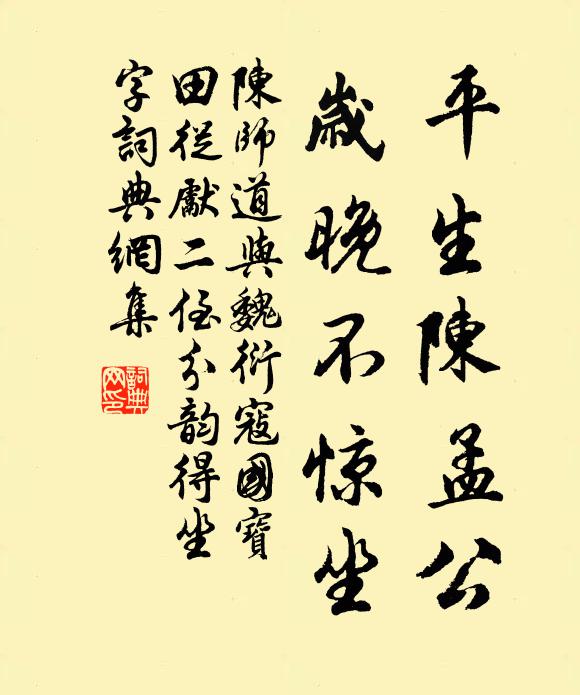 平生陳孟公
歲晚不惊坐
陳師道與魏衍寇國寶
田從獻二侄分韵得坐
字詞典網集
詞典
网印